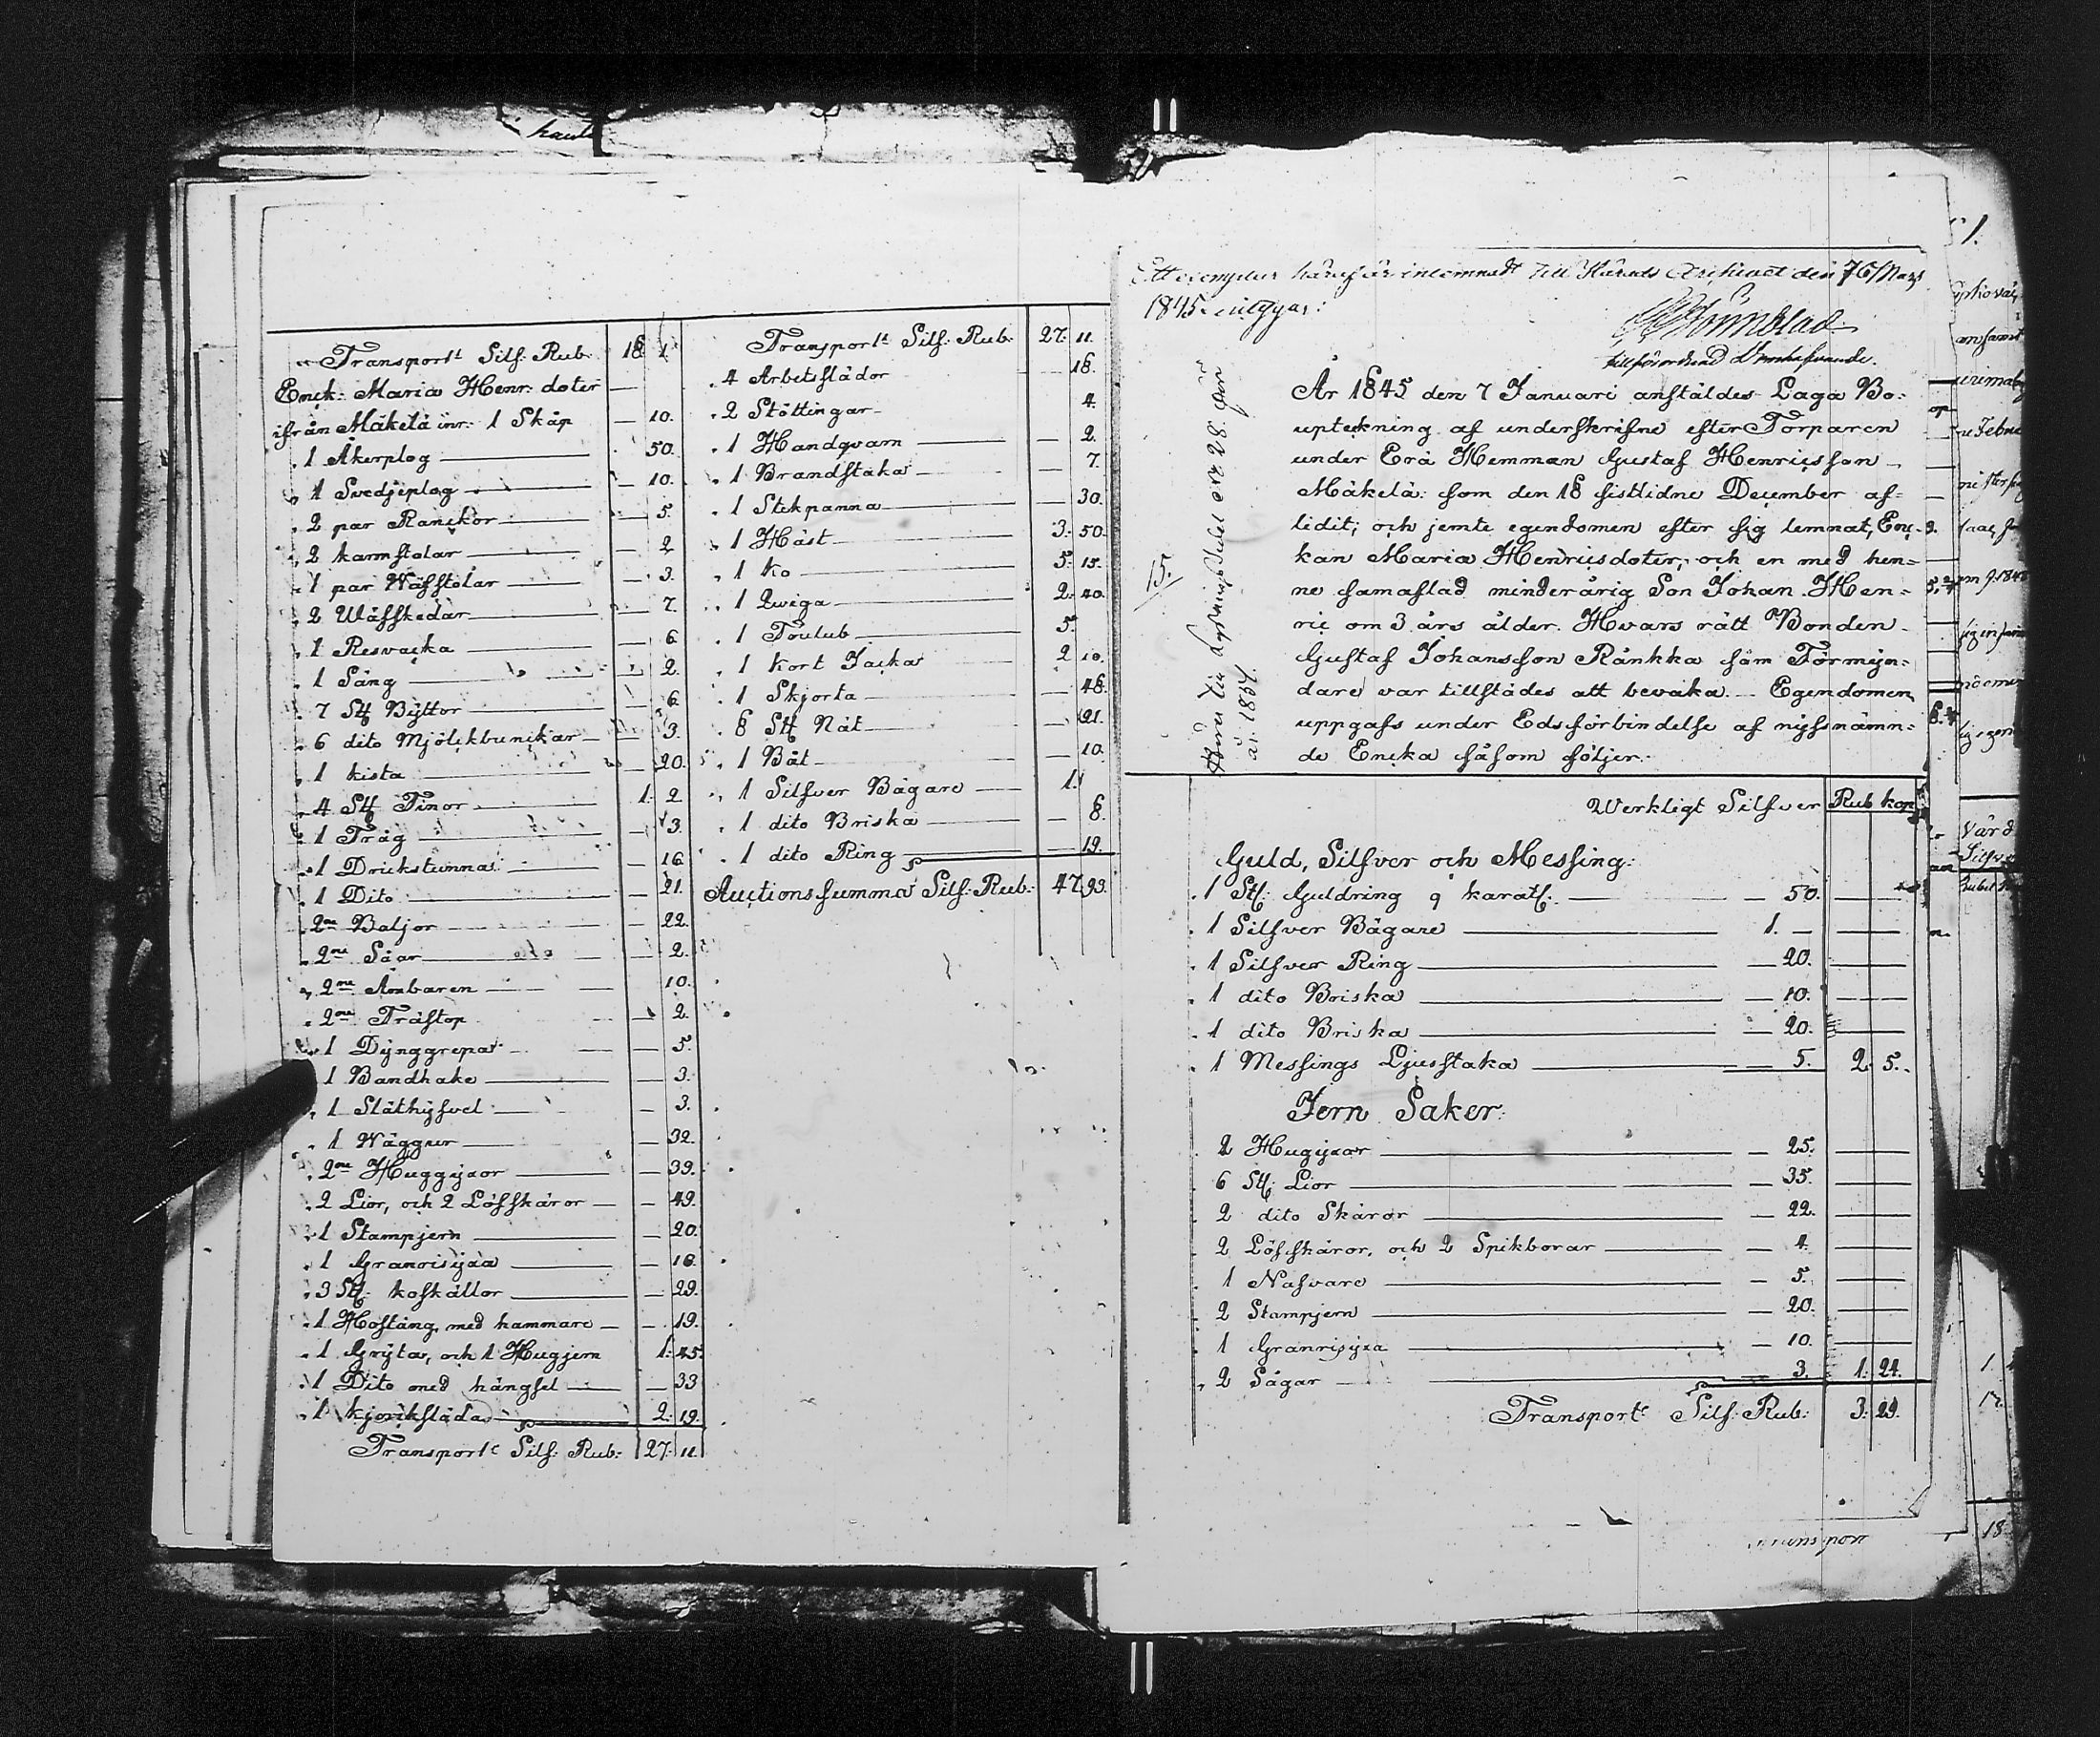 Transport: Silf: Rub: 18. 1.
Enck: Maria Henr: doter
ifrån Mäkelä inr: 1 Skåp — 10.
1 Åkerplog — 50.
1 Svedjeplog — 10.
2 par Ranckor — 5.
2 karmstolar — 2
1 par Wäfstolar — 3.
2 Wäfskedar — 7.
1 Resvacka — 6.
1 Säng — 2.
7 St: Byttor — 6.
6 dito Mjölckbunckar — 3.
1 kista — 20.
4 St: Tinor 1. 2
1 Tråg — 3.
1 Drickstunna — 16
1 Dito — 21.
2ne Baljor — 22.
2ne Såar — 2.
2ne Ambaren 10.
2ne Trästop — 2.
1 Dÿnggrepa — 5.
1 Bandhake — 3.
1 Släthÿfvel — 3.
1 Wäggur — 32.
2ne Huggÿxor — 39.
2 Lior, och 2 Löfskäror — 49.
1 Stampjern — 20.
1 Granrisÿxa — 16.
3 St: koskällor — 29.
1 Hoftång, med hammare — 19.
1 Grÿta, och 1 Hugjern 1. 45.
1 Dito med hängsel — 33
1 kjörikslåda 2. 19.
Transport: Silf: Rub: 27. 11.
Transport: Silf: Rub: 27. 11.
4 Arbetsslädor — 18.
2 Stöttingar 4.
1 Handqvarn — 2.
1 Brandstaka — 7.
1 Stekpanna — 30.
1 Häst 3. 50.
1 Ko 5. 15.
1 Qwiga 2. 40.
1 Toulub 5.
1 kort Jacka 2 10.
1 Skjorta — 48.
8 St: Nät — 21.
1 Båt — 10.
1 Silfver Bägare 1.
1 dito Briska — 8.
1 dito Ring — 19.
Auctions summa Silf: Rub: 47. 99.
Ett exemplar häraf är inlemnadt till Härads Archivet den 76/Mars
1845. intygar:
15.
år. 1864.
År 1845 den 7 Januari anstäldes Laga Bo:
upteckning af underskrifne efter Torparen
under Erä Hemman Gustaf Henricsson
Mäkelä: som den 18 sistlidne December af=
lidit; och jemte egendomen efter sig lemnat, Enc-
kan Maria Henricsdoter, och en med hen=
ne samaflad minderårig Son Johan Hen=
ric om 3 års ålder. Hvars rätt Bonden
Gustaf Johansson Ränkka såm Förmÿn=
dare var tillstädes att bevaka. — Egendomen
uppgafs under Edsförbindelse af nÿssnämn=
de Encka såsom följer.
Werkligt Silfver Rub kop
Guld, Silfver och Messing:
1 St: Guldring 9 karat: — 50.
1 Silfver Bägare 1. —
1 Silfver Ring — 20.
1 dito Briska — 10.
1 dito Briska — 20.
1 Messings Ljusstaka — 5. 2. 5.
Jern Saker:
2 Hugÿxor — 25.
6 St: Lior — 35.
2 dito Skäror — 22.
2 Löfskäror, och 2 Spikborar — 4.
1 Nafvare — 5.
2 Stampjern — 20.
1 Granrisÿxa — 10.
2 Sågar — 3. 1. 24.
Transport: Silf: Rub: 3. 29.